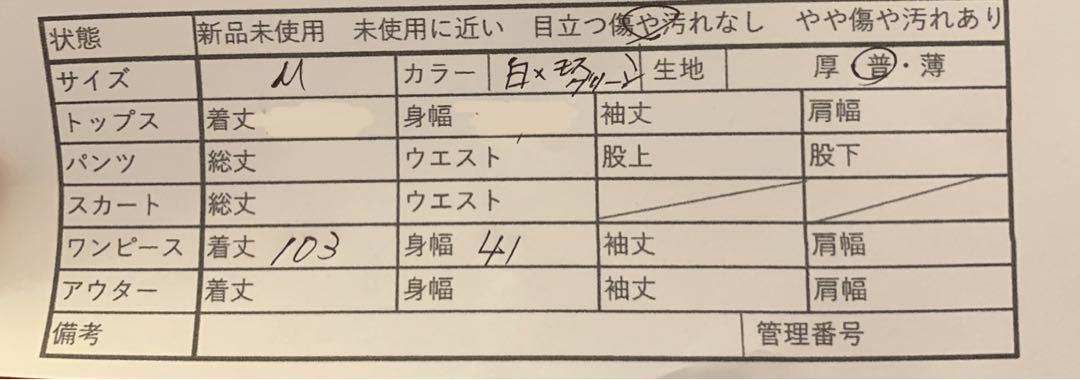 状態 新品未使用 未使用に近い 目立つ傷や汚れなし やや傷や汚れあり
サイズ M カラー 白×モスグリーン 生地 厚・普・薄
トップス 着丈 身幅 袖丈 肩幅
パンツ 総丈 ウエスト 股上 股下
スカート 総丈 ウエスト
ワンピース 着丈 103 身幅 41 袖丈 肩幅
アウター 着丈 身幅 袖丈 肩幅
備考 管理番号